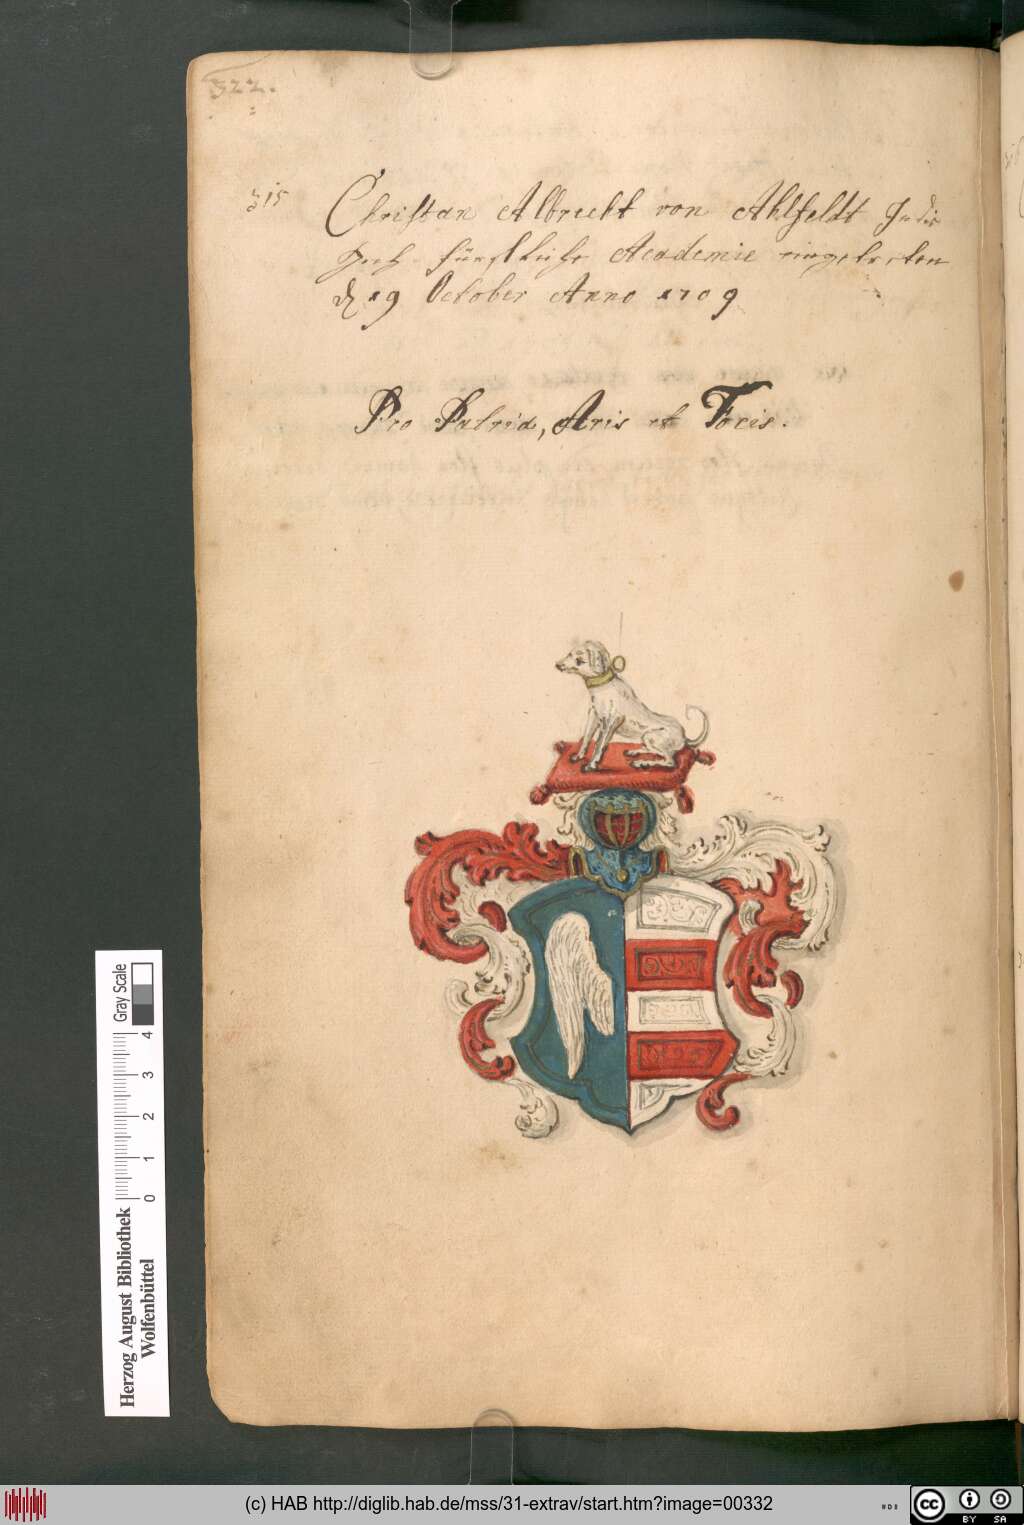 322.
315 Christan Albrecht von Ahlfeldt In die
Hoch fürstliche Academie eingetreten
19 October Anno 1709
Pro Patria, Aris et Focis.
Gray Scale
0 1 2 3 4
Herzog August Bibliothek
Wolfenbüttel
(c) HAB http://diglib.hab.de/mss/31-extrav/start.htm?image=00332
cc BY SA